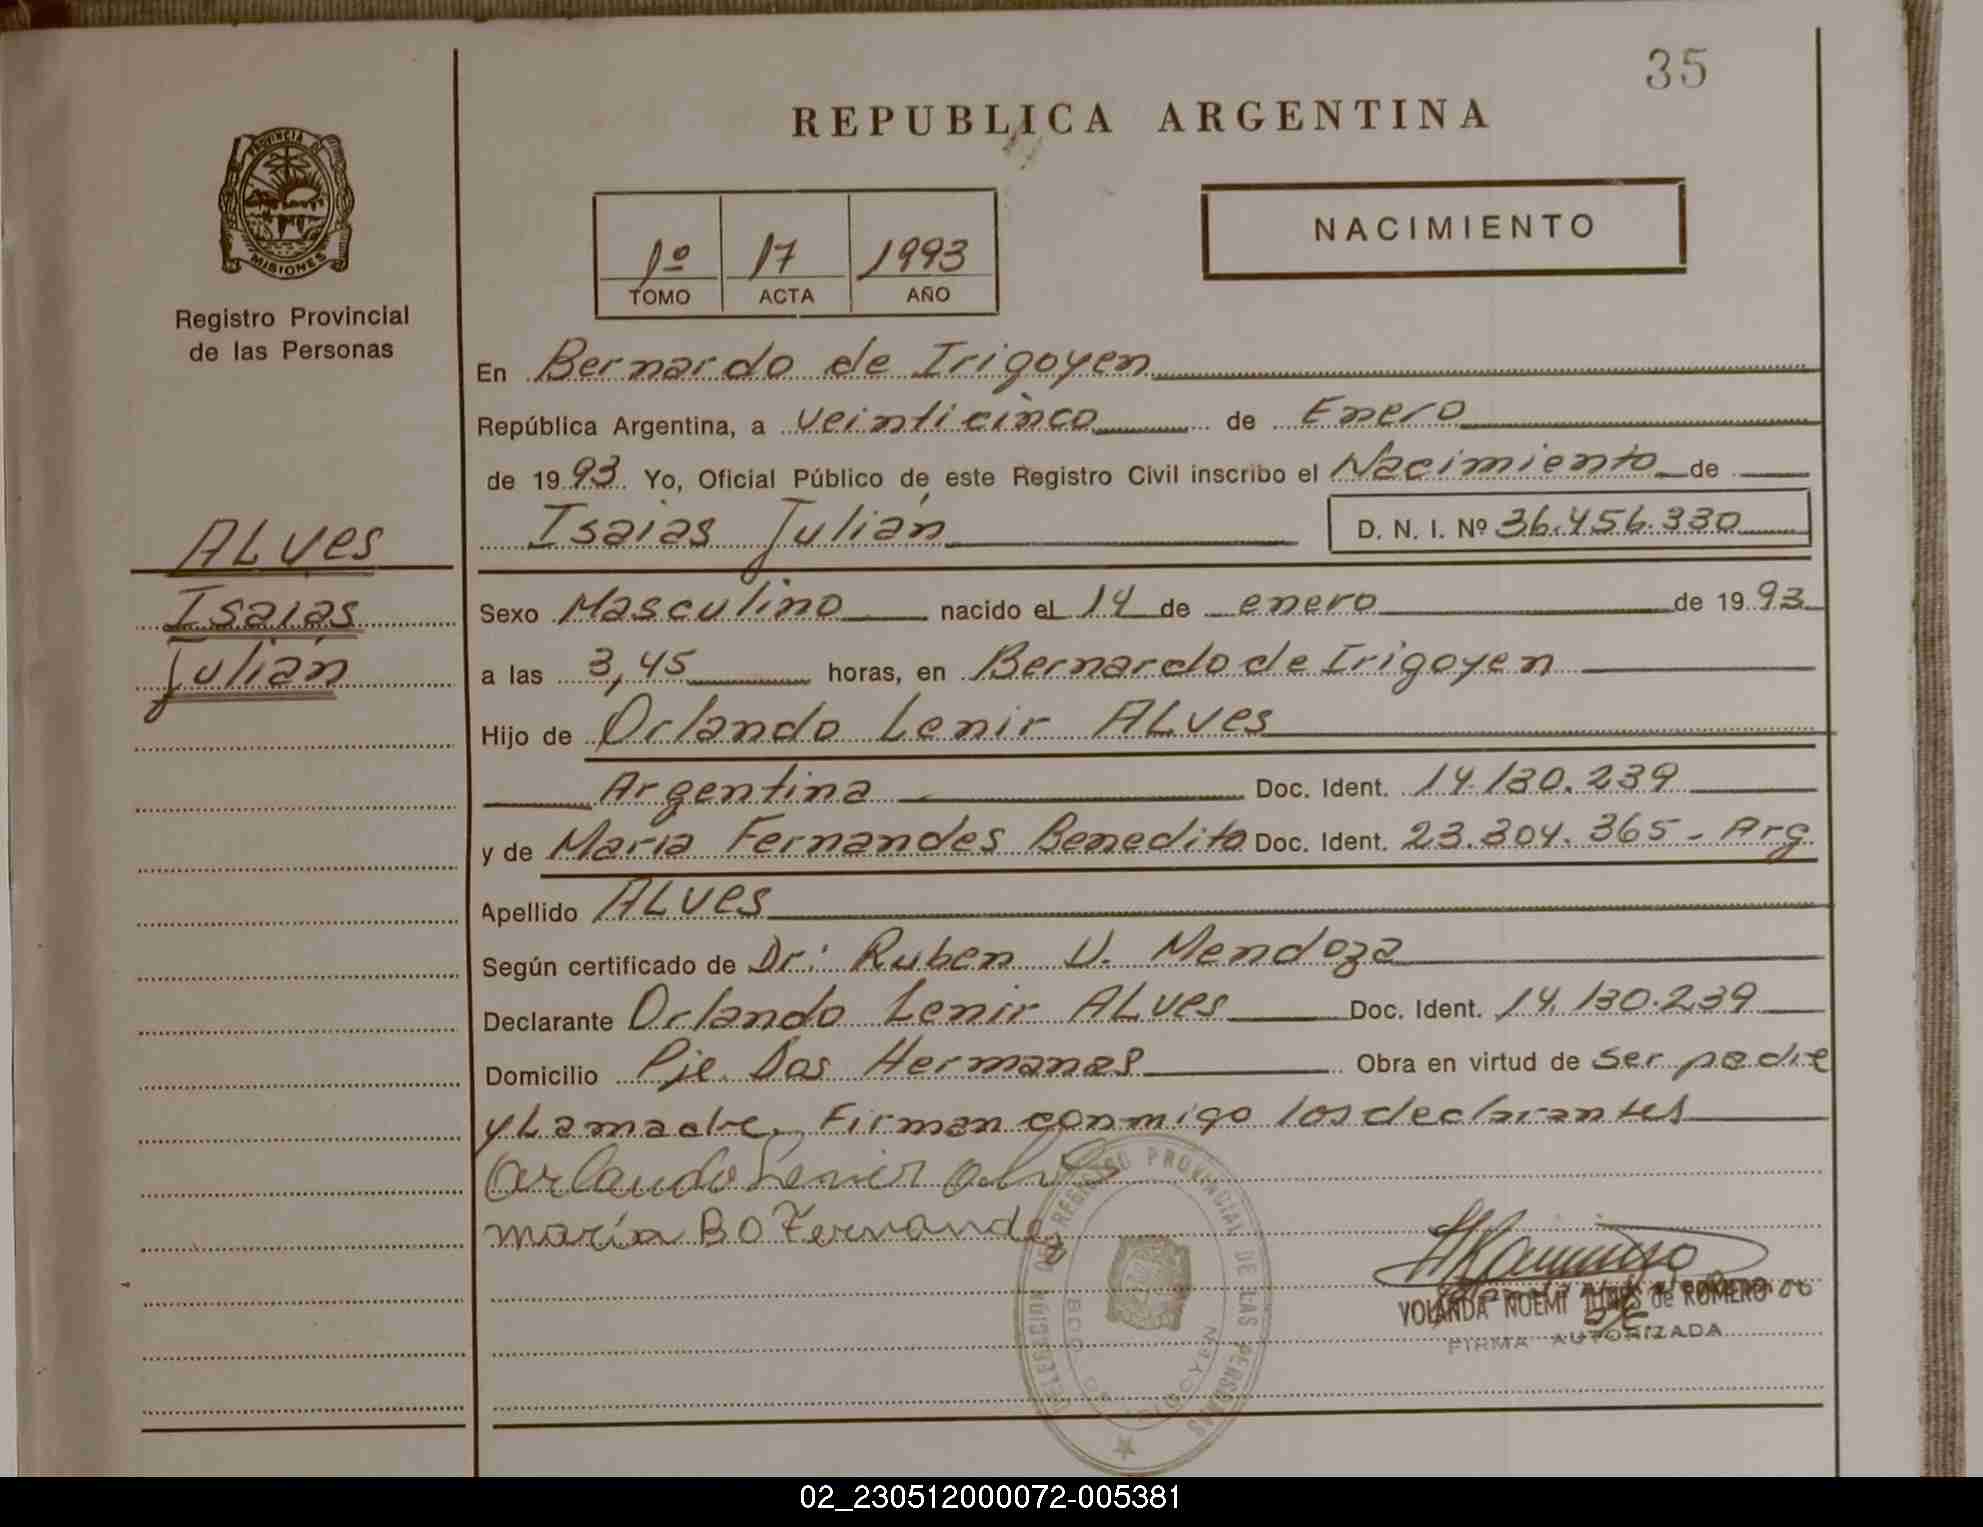 35
REPUBLICA ARGENTINA
PROVINCIA DE
MISIONES
Registro Provincial
de las Personas
1º 17 1993
TOMO ACTA AÑO
NACIMIENTO
En Bernardo de Irigoyen
República Argentina, a veinticinco de Enero
de 1993 Yo, Oficial Público de este Registro Civil inscribo el Nacimiento de
Isaias Julián D. N. I. Nº 36.456.330
ALves
Isaias
Julián
Sexo Masculino nacido el 14 de enero de 1993
a las 3,45 horas, en Bernardo de Irigoyen
Hijo de Orlando Lenir ALves
Argentina Doc. Ident. 14.130.239
y de Maria Fernandes Benedito Doc. Ident. 23.304.365 - Arg.
Apellido ALves
Según certificado de Dr: Ruben U. Mendoza
Declarante Orlando Lenir ALves Doc. Ident. 14.130.239
Domicilio Pje. Dos Hermanas Obra en virtud de ser padre
y La madre. Firman conmigo los declarantes
Orlando Lenir
maría B O Fernandez
DELEGACION DEL REGISTRO PROVINCIAL DE LAS PERSONAS
BDO DE IRIGOYEN
YOLANDA NOEMI de ROMERO
FIRMA AUTORIZADA
02_230512000072-005381